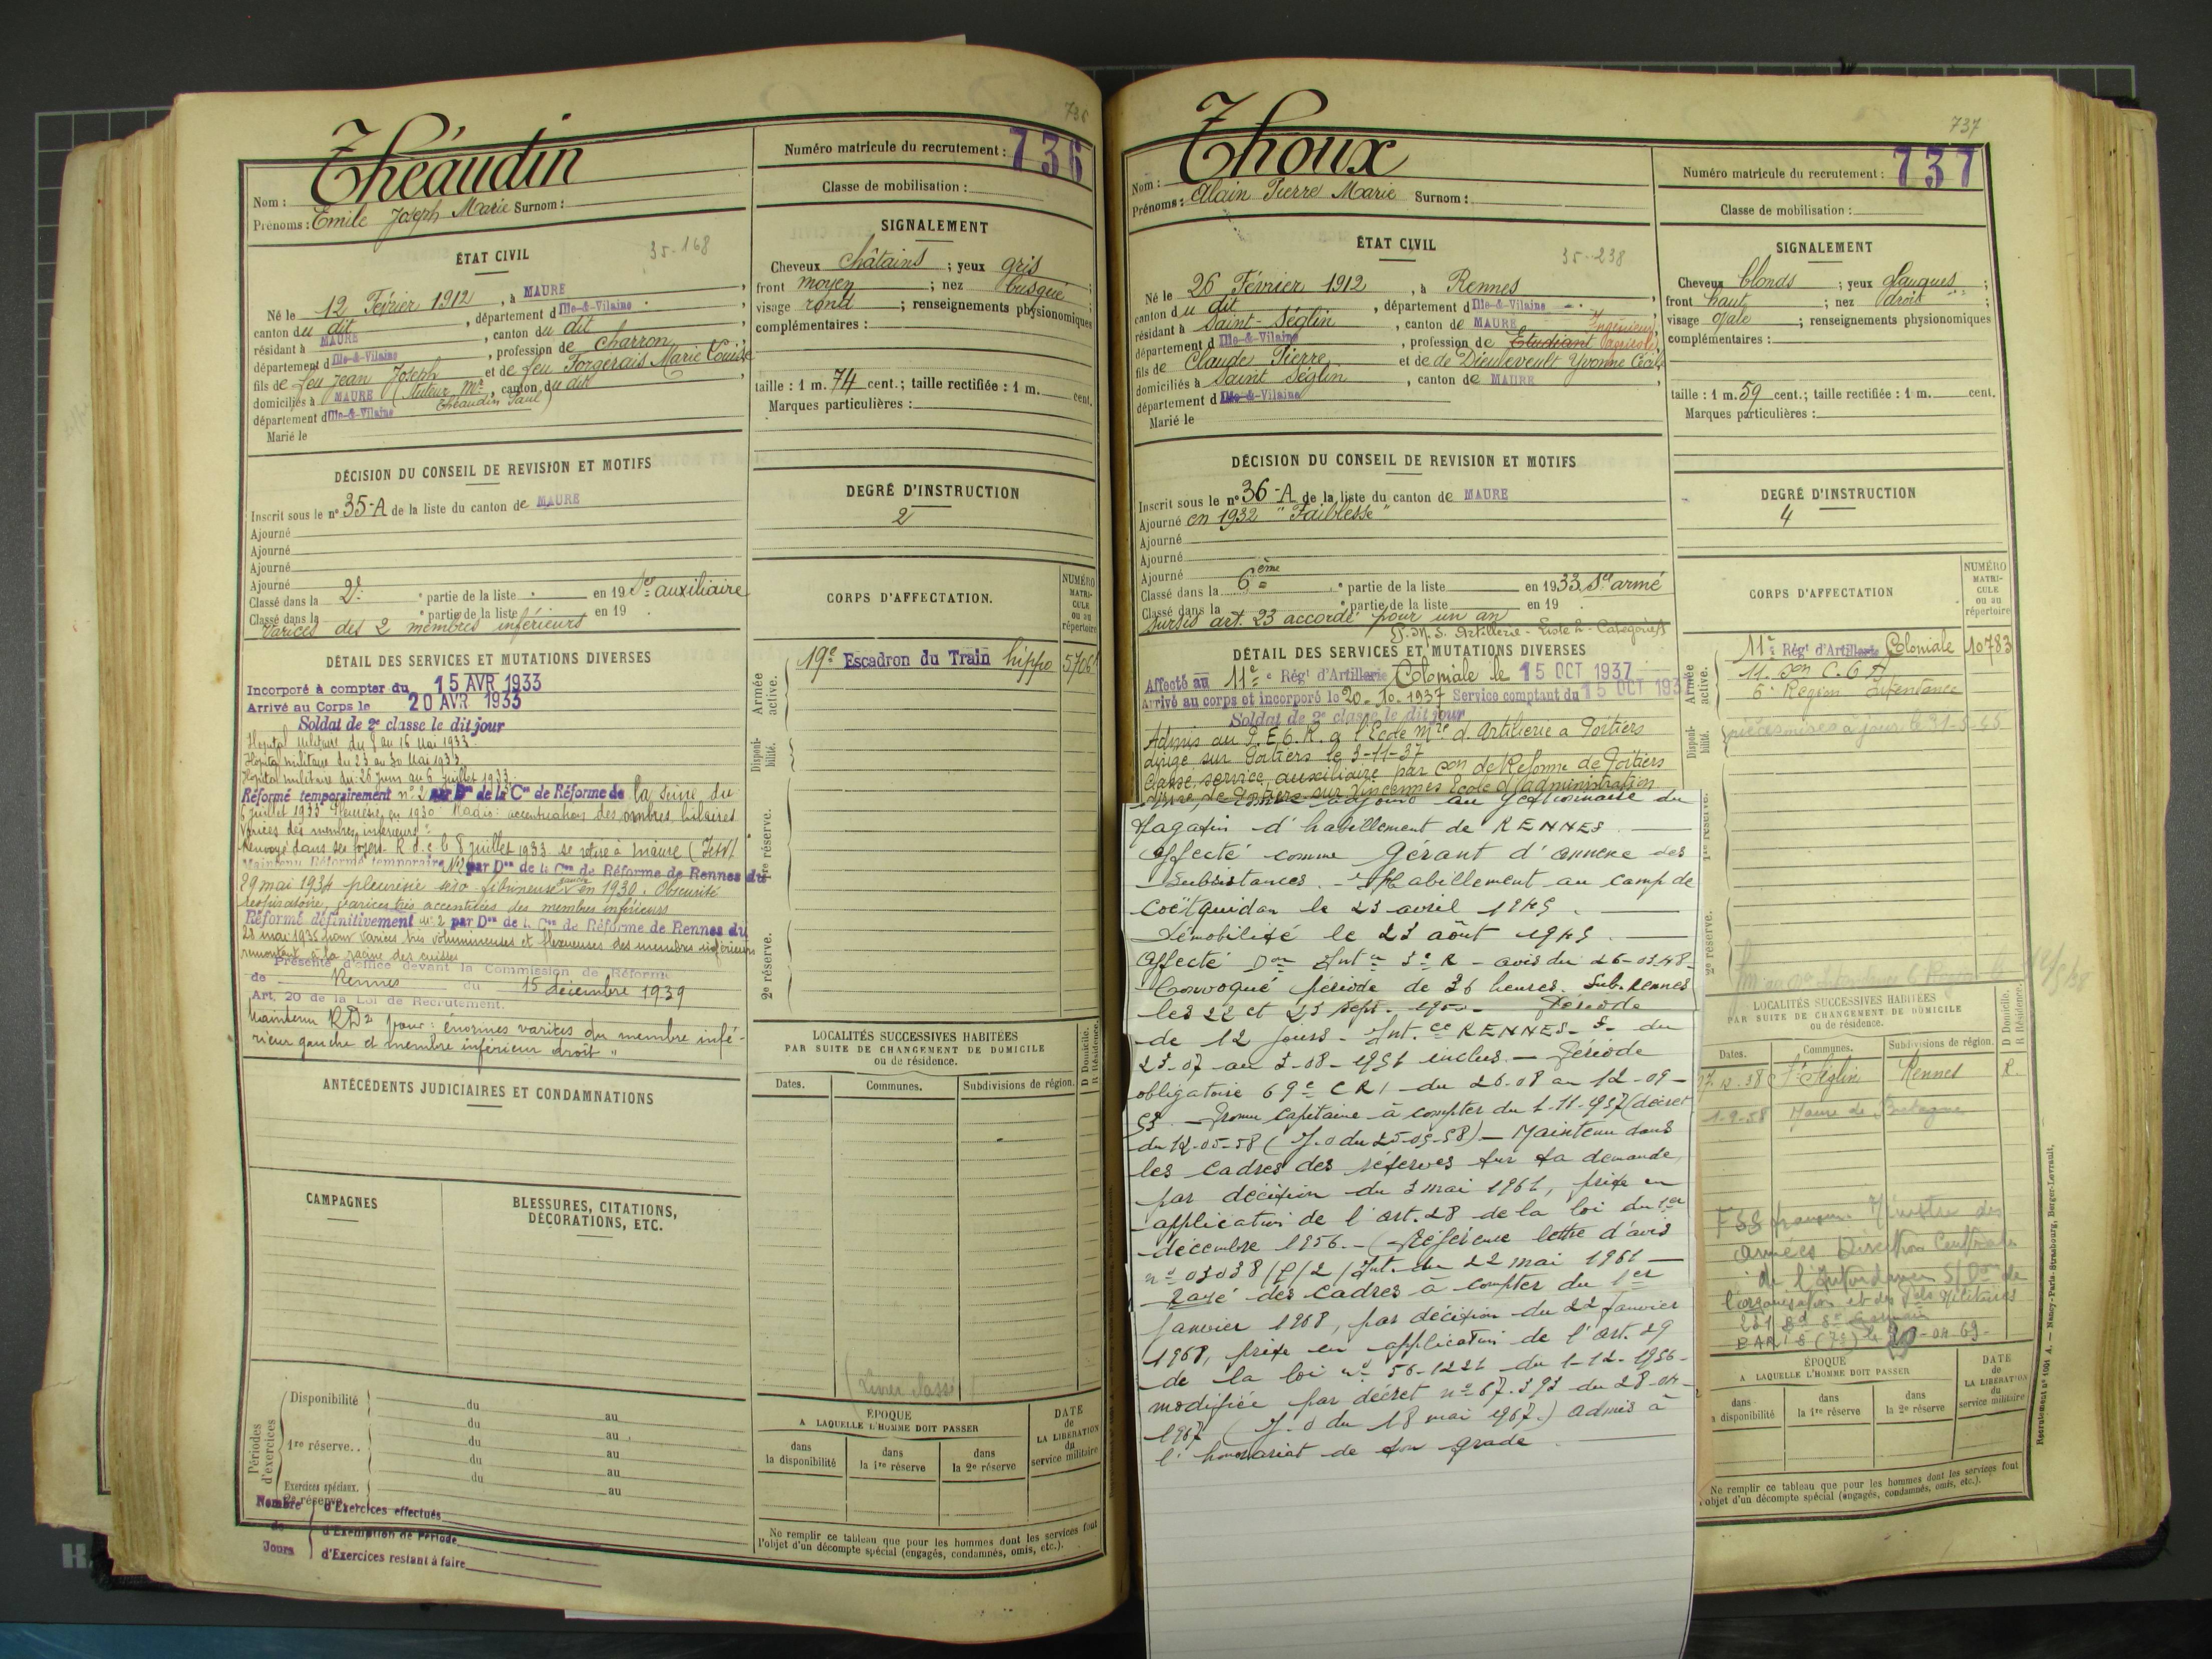 736
Théaudin
Nom :
Prénoms : Emile Joseph Marie Surnom :
Numéro matricule du recrutement : 736
Classe de mobilisation :
ÉTAT CIVIL
35-168
Né le 12 Février 1912, à MAURE,
canton du dit, département d'Ille-&-Vilaine.
résidant à MAURE, canton du dit,
département d'Ille-&-Vilaine, profession de charron,
fils de feu Jean Joseph et de feu Forgerais Marie Louise
domiciliés à MAURE (Tuteur Mr Théaudin Paul), canton du dit
département d'Ille-&-Vilaine
Marié le
SIGNALEMENT
Cheveux châtains ; yeux gris ;
front moyen ; nez busqué ;
visage rond ; renseignements physionomiques
complémentaires :
taille : 1 m. 74 cent. ; taille rectifiée : 1 m. cent.
Marques particulières :
DÉCISION DU CONSEIL DE REVISION ET MOTIFS
Inscrit sous le n° 35-A de la liste du canton de MAURE
Ajourné
Ajourné
Ajourné
Ajourné
Classé dans la 2e ° partie de la liste en 19 Sce auxiliaire
Classé dans la ° partie de la liste en 19 .
Varices des 2 membres inférieurs
DEGRÉ D'INSTRUCTION
2
DÉTAIL DES SERVICES ET MUTATIONS DIVERSES
Incorporé à compter du 15 AVR 1933
Arrivé au Corps le 20 AVR 1933
Soldat de 2e classe le dit jour
Hôpital militaire du 8 au 16 Mai 1933
Hôpital militaire du 23 au 30 Mai 1933
Hôpital militaire du 26 juin au 6 juillet 1933
Réformé temporairement n° 2 par Don de la Con de Réforme de la Seine du
6 juillet 1933 Pleurésie en 1930 Radio : accentuation des ombres hilaires
Varices des membres inférieurs
Renvoyé dans ses foyers R.d.c le 8 juillet 1933 se retire à Maure (I et V)
Maintenu Réformé temporaire N°2 par Don de la Con de Réforme de Rennes du
29 mai 1934 pleurésie séro-fibrineuse gauche en 1930. Obscurité
respiratoire, varices très accentuées des membres inférieurs
Réformé définitivement n° 2 par Don de la Con de Réforme de Rennes du
28 mai 1935 pour varices très volumineuses et flexueuses des membres inférieurs
remontant à la racine des cuisses
Présenté d'office devant la Commission de Réforme
de Rennes du 15 décembre 1939
Art. 20 de la Loi de Recrutement.
Maintenu RD2 pour : énormes varices du membre infé-
rieur gauche et membre inférieur droit "
CORPS D'AFFECTATION.
NUMÉRO MATRICULE ou au répertoire
Armée active.
19e Escadron du Train hippo
Disponibilité.
1re réserve.
2e réserve.
ANTÉCÉDENTS JUDICIAIRES ET CONDAMNATIONS
LOCALITÉS SUCCESSIVES HABITÉES
PAR SUITE DE CHANGEMENT DE DOMICILE
ou de résidence.
Dates. Communes. Subdivisions de région. D Domicile. R Résidence.
CAMPAGNES
BLESSURES, CITATIONS,
DÉCORATIONS, ETC.
Périodes d'exercices
Disponibilité du au
du au
1re réserve.. du au
du au
Exercices spéciaux. du au
2e réserve au
Nombre de Jours
d'Exercices effectués
d'Exemption de Période
d'Exercices restant à faire
ÉPOQUE
A LAQUELLE L'HOMME DOIT PASSER
dans la disponibilité
dans la 1re réserve
dans la 2e réserve
DATE de LA LIBÉRATION du service militaire
Ne remplir ce tableau que pour les hommes dont les services font
l'objet d'un décompte spécial (engagés, condamnés, omis, etc.).
737
Thoux
Nom :
Prénoms : Alain Pierre Marie Surnom :
Numéro matricule du recrutement : 737
Classe de mobilisation :
ÉTAT CIVIL
35-238
Né le 26 Février 1912, à Rennes,
canton du dit, département d'Ille-&-Vilaine
résidant à Saint-Séglin, canton de MAURE,
département d'Ille-&-Vilaine, profession de Etudiant Ingénieur Agricole,
fils de Claude Pierre et de de Dieuleveult Yvonne Cécile
domiciliés à Saint Séglin, canton de MAURE,
département d'Ille-&-Vilaine
Marié le
SIGNALEMENT
Cheveux blonds ; yeux glauques ;
front haut ; nez droit ;
visage ovale ; renseignements physionomiques
complémentaires :
taille : 1 m. 59 cent. ; taille rectifiée : 1 m. cent.
Marques particulières :
DÉCISION DU CONSEIL DE REVISION ET MOTIFS
Inscrit sous le n° 36-A de la liste du canton de MAURE
Ajourné en 1932 "Faiblesse"
Ajourné
Ajourné
Ajourné
Classé dans la 6ème ° partie de la liste en 1933 Sce armé
Classé dans la ° partie de la liste en 19 .
Sursis art. 23 accordé pour un an
P.M.S. Artillerie - Liste 2 - Catégorie A
DEGRÉ D'INSTRUCTION
4
DÉTAIL DES SERVICES ET MUTATIONS DIVERSES
Affecté au 11e Régt d'Artillerie Coloniale le 15 OCT 1937
Arrivé au corps et incorporé le 20-10-1937 Service comptant du 15 OCT 193
Soldat de 2e classe le dit jour
Admis au P.E.O.R. à l'Ecole Mre d'Artillerie à Poitiers
dirigé sur Poitiers le 3-11-37
Classé service auxiliaire par Con de Réforme de Poitiers
dirigé de Poitiers sur Vincennes Ecole d'administration
adjoint au gestionnaire du
Magasin d'habillement de RENNES.
Affecté comme Gérant d'annexe des
Subsistances. - Habillement au camp de
Coëtquidan le 23 avril 1945.
Démobilisé le 23 août 1945.
Affecté Don Intce 3e R - avis du 26-03-48-
Convoqué période de 36 heures. Sub. Rennes
les 22 et 23 sept. 1950 - Période
de 12 jours - Int.ce RENNES - S. du
23-07 au 3-08-1951 inclus. - Période
obligatoire 69e C R I - du 26-08 au 12-09-
53. - Promu Capitaine à compter du 1-11-1957 (décret
du 12-05-58 (J.O du 25-05-58) - Maintenu dans
les cadres des réserves sur sa demande,
par décision du 3 mai 1961, prise en
application de l'art. 28 de la loi du 1er
décembre 1956. - (Référence lettre d'avis
n° 03038/P/2/Int. du 22 mai 1961 -
Rayé des cadres à compter du 1er
janvier 1968, par décision du 22 janvier
1968, prise en application de l'art. 29
de la loi n° 56-1221 du 1-12-1956-
modifiée par décret n° 67.393 du 28-04-
1967 (J.O du 18 mai 1967.) Admis à
l'honorariat de son grade.
CORPS D'AFFECTATION
NUMÉRO MATRICULE ou au répertoire
Armée active.
11e Régt d'Artillerie Coloniale 10783
11. Son C.O.A
6e Région Intendance
Disponibilité.
pièces mises à jour le 31-5-45
1re réserve.
2e réserve.
LOCALITÉS SUCCESSIVES HABITÉES
PAR SUITE DE CHANGEMENT DE DOMICILE
ou de résidence.
Dates. Communes. Subdivisions de région. D Domicile. R Résidence.
St Séglin Rennes R.
1-9-58 Maure de Bretagne
Ministre des
Armées Direction Centrale
de l'Intendance S/Don de
l'organisation et des Pels militaires
231 Bd St Germain
PARIS (7e) le 30-04-69-
ÉPOQUE
A LAQUELLE L'HOMME DOIT PASSER
dans la disponibilité
dans la 1re réserve
dans la 2e réserve
DATE de LA LIBÉRATION du service militaire
Ne remplir ce tableau que pour les hommes dont les services font
l'objet d'un décompte spécial (engagés, condamnés, omis, etc.).
Recrutement n° 1004 A. — Nancy-Paris-Strasbourg, Berger-Levrault.